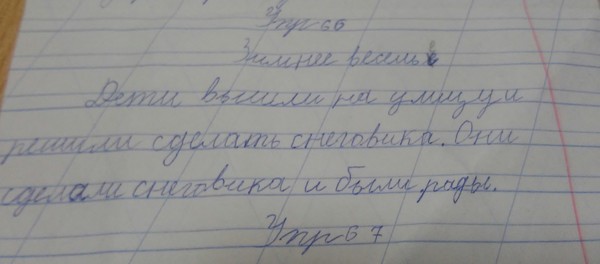 Упр 66
Зимнее веселье
Дети вышли на улицу и
решили сделать снеговика. Они
сделали снеговика и были рады.
Упр 67